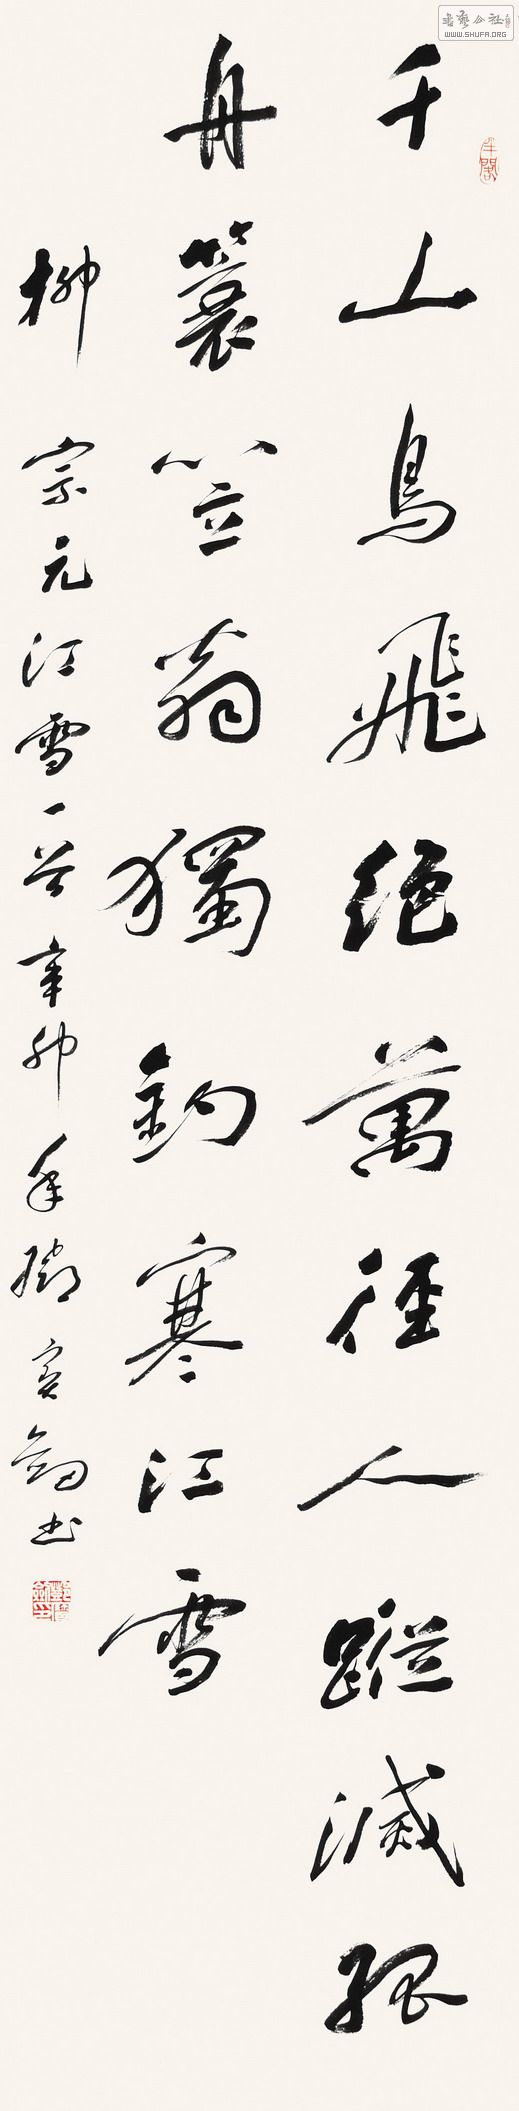 千山鳥飛絕萬徑人蹤滅孤
舟簑笠翁獨釣寒江雪
柳宗元江雪一首辛卯年鄧實劍書
WWW.SHUFA.ORG